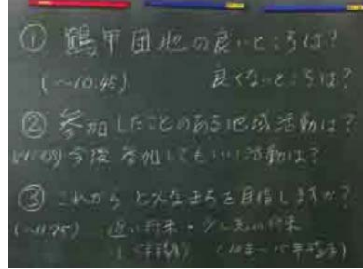 ① 鶴甲団地の良いところは?
(~10:45) 良くないところは?
② 参加したことのある地域活動は?
今後 参加してもいい活動は?
③ これから どんなまちを目指しますか?
近い将来・少し先の将来
(10年~15年程度)